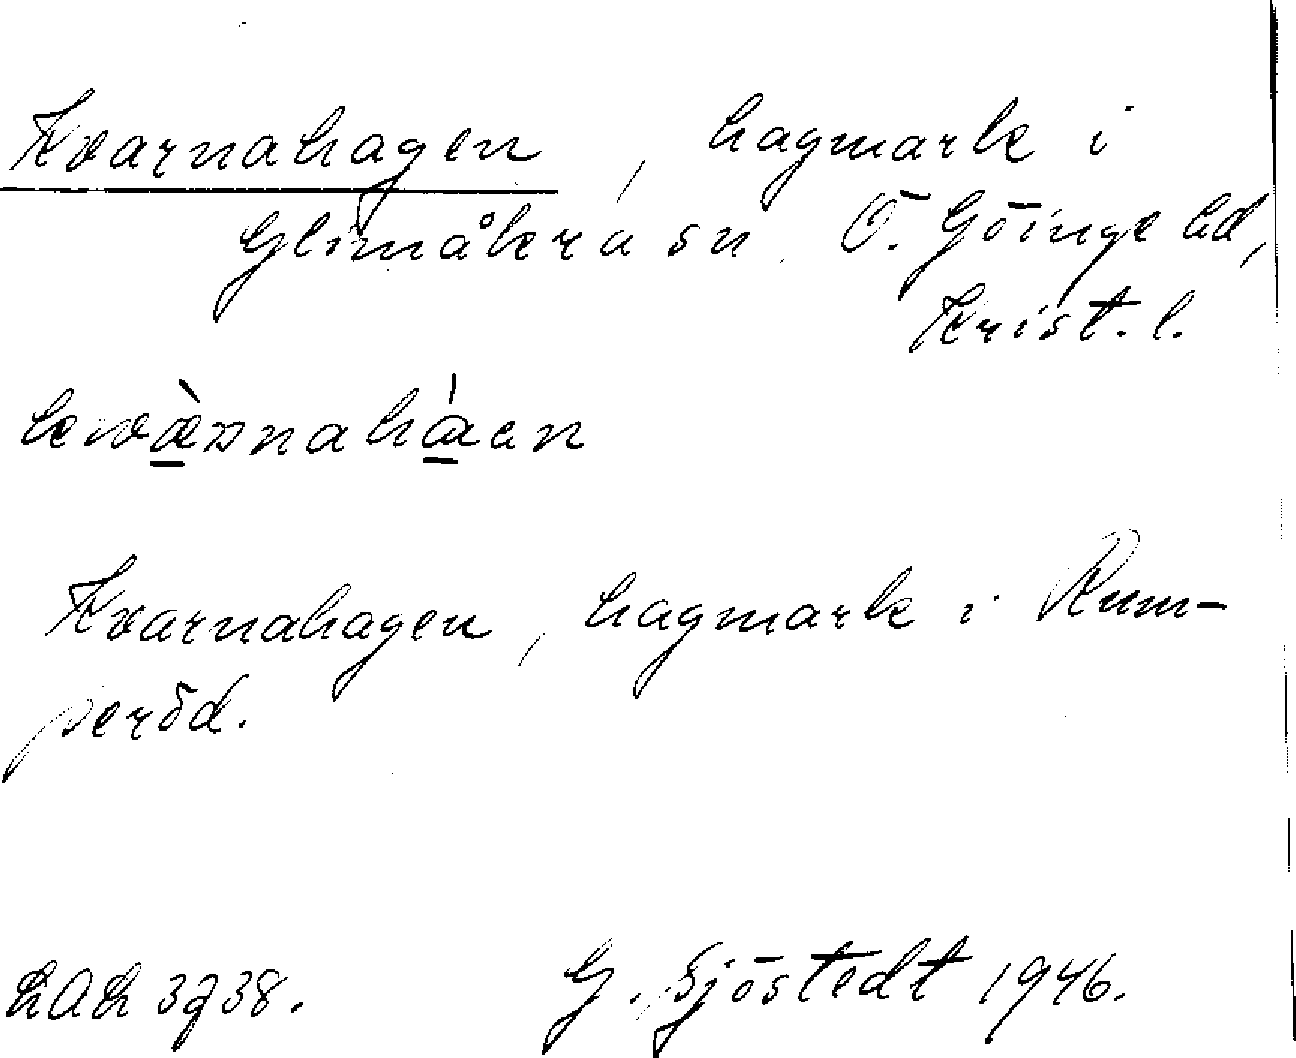 Kvarnahagen, hagmark i
Glimåkra sn. Ö. Göinge hd,
Krist. l.
Kvarnahagen, hagmark i Rum-
peröd.
G. Sjöstedt 1946.